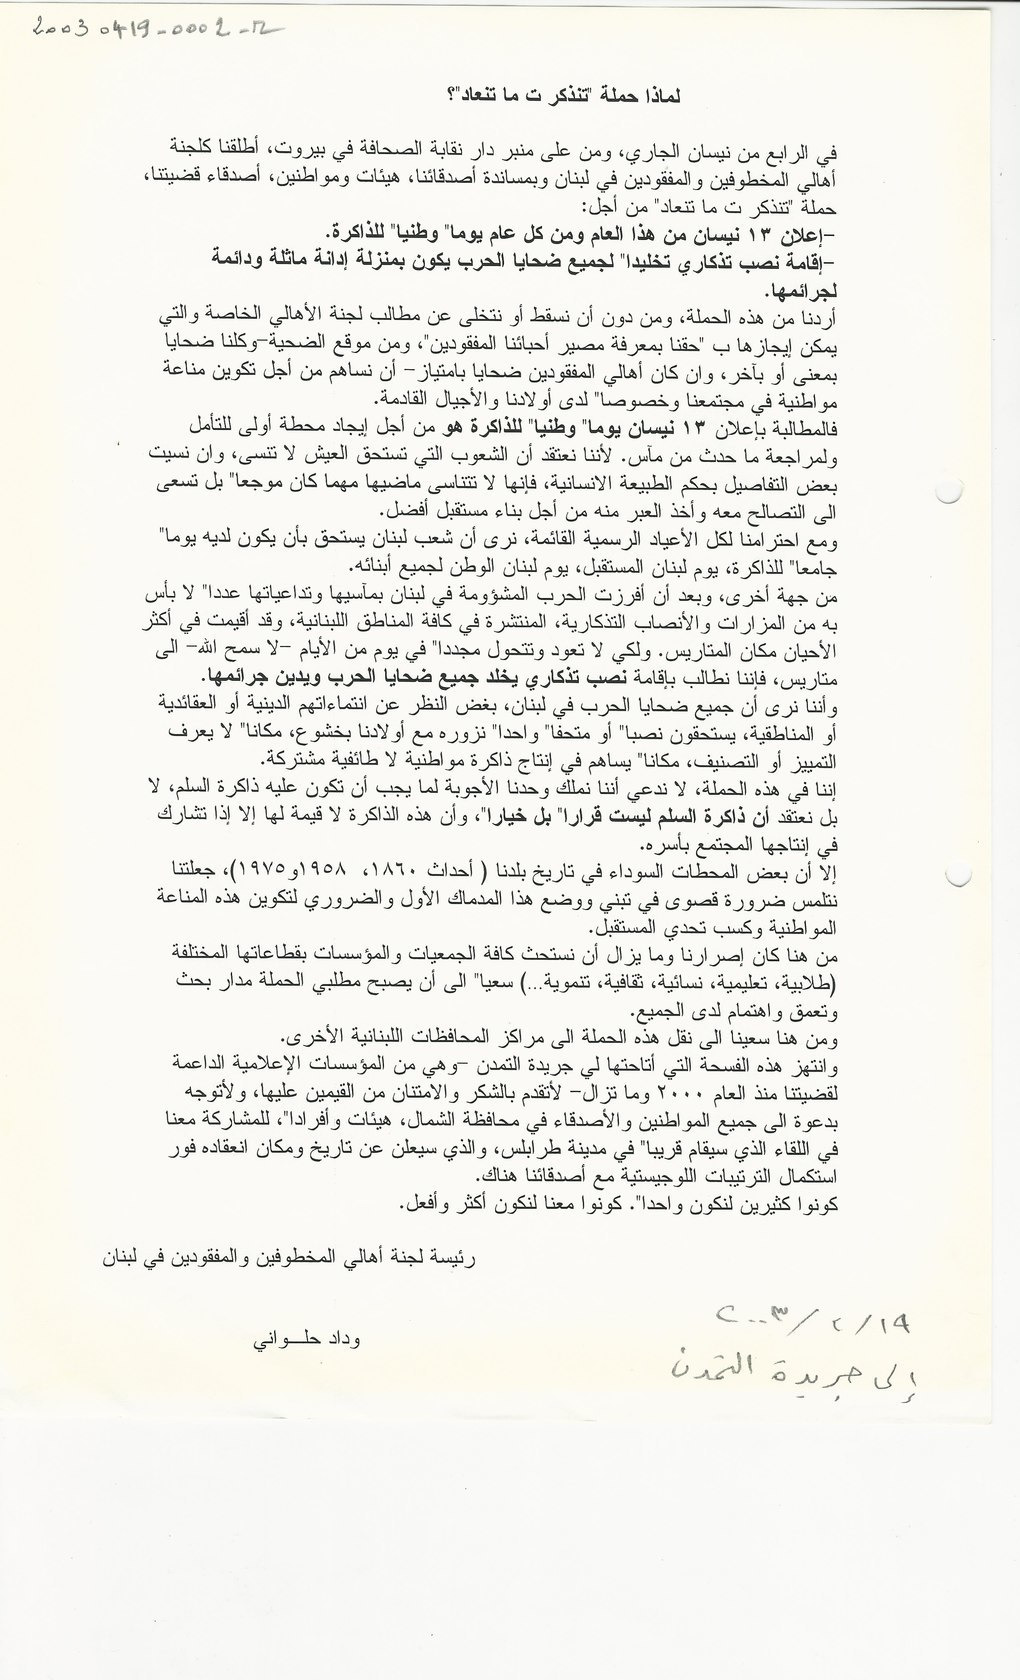 20030419-0002-
لماذا حملة "تنذكر ت ما تنعاد"؟
في الرابع من نيسان الجاري، ومن على منبر دار نقابة الصحافة في بيروت، أطلقنا كلجنة
أهالي المخطوفين والمفقودين في لبنان وبمساندة أصدقائنا، هيئات ومواطنين، أصدقاء قضيتنا،
حملة "تنذكر ت ما تنعاد" من أجل:
-إعلان ١٣ نيسان من هذا العام ومن كل عام يوما" وطنيا" للذاكرة.
-إقامة نصب تذكاري تخليدا" لجميع ضحايا الحرب يكون بمنزلة إدانة ماثلة ودائمة
لجرائمها.
أردنا من هذه الحملة، ومن دون أن نسقط أو نتخلى عن مطالب لجنة الأهالي الخاصة والتي
يمكن إيجازها ب "حقنا بمعرفة مصير أحبائنا المفقودين"، ومن موقع الضحية-وكلنا ضحايا
بمعنى أو بآخر، وان كان أهالي المفقودين ضحايا بامتياز- أن نساهم من أجل تكوين مناعة
مواطنية في مجتمعنا وخصوصا" لدى أولادنا والأجيال القادمة.
فالمطالبة بإعلان ١٣ نيسان يوما" وطنيا" للذاكرة هو من أجل إيجاد محطة أولى للتأمل
ولمراجعة ما حدث من مآس. لأننا نعتقد أن الشعوب التي تستحق العيش لا تنسى، وان نسيت
بعض التفاصيل بحكم الطبيعة الانسانية، فإنها لا تتناسى ماضيها مهما كان موجعا" بل تسعى
الى التصالح معه وأخذ العبر منه من أجل بناء مستقبل أفضل.
ومع احترامنا لكل الأعياد الرسمية القائمة، نرى أن شعب لبنان يستحق بأن يكون لديه يوما"
جامعا" للذاكرة، يوم لبنان المستقبل، يوم لبنان الوطن لجميع أبنائه.
من جهة أخرى، وبعد أن أفرزت الحرب المشؤومة في لبنان بمآسيها وتداعياتها عددا" لا بأس
به من المزارات والأنصاب التذكارية، المنتشرة في كافة المناطق اللبنانية، وقد أقيمت في أكثر
الأحيان مكان المتاريس. ولكي لا تعود وتتحول مجددا" في يوم من الأيام -لا سمح الله- الى
متاريس، فإننا نطالب بإقامة نصب تذكاري يخلد جميع ضحايا الحرب ويدين جرائمها.
وأننا نرى أن جميع ضحايا الحرب في لبنان، بغض النظر عن انتماءاتهم الدينية أو العقائدية
أو المناطقية، يستحقون نصبا" أو متحفا" واحدا" نزوره مع أولادنا بخشوع، مكانا" لا يعرف
التمييز أو التصنيف، مكانا" يساهم في إنتاج ذاكرة مواطنية لا طائفية مشتركة.
إننا في هذه الحملة، لا ندعي أننا نملك وحدنا الأجوبة لما يجب أن تكون عليه ذاكرة السلم، لا
بل نعتقد أن ذاكرة السلم ليست قرارا" بل خيارا"، وأن هذه الذاكرة لا قيمة لها إلا إذا تشارك
في إنتاجها المجتمع بأسره.
إلا أن بعض المحطات السوداء في تاريخ بلدنا ( أحداث ١٨٦٠، ١٩٥٨و١٩٧٥)، جعلتنا
نتلمس ضرورة قصوى في تبني ووضع هذا المدماك الأول والضروري لتكوين هذه المناعة
المواطنية وكسب تحدي المستقبل.
من هنا كان إصرارنا وما يزال أن نستحث كافة الجمعيات والمؤسسات بقطاعاتها المختلفة
(طلابية، تعليمية، نسائية، ثقافية، تنموية...) سعيا" الى أن يصبح مطلبي الحملة مدار بحث
وتعمق واهتمام لدى الجميع.
ومن هنا سعينا الى نقل هذه الحملة الى مراكز المحافظات اللبنانية الأخرى.
وانتهز هذه الفسحة التي أتاحتها لي جريدة التمدن -وهي من المؤسسات الإعلامية الداعمة
لقضيتنا منذ العام ٢٠٠٠ وما تزال- لأتقدم بالشكر والامتنان من القيمين عليها، ولأتوجه
بدعوة الى جميع المواطنين والأصدقاء في محافظة الشمال، هيئات وأفرادا"، للمشاركة معنا
في اللقاء الذي سيقام قريبا" في مدينة طرابلس، والذي سيعلن عن تاريخ ومكان انعقاده فور
استكمال الترتيبات اللوجيستية مع أصدقائنا هناك.
كونوا كثيرين لنكون واحدا". كونوا معنا لنكون أكثر وأفعل.
رئيسة لجنة أهالي المخطوفين والمفقودين في لبنان
وداد حلـــواني
إلى جريدة التمدن